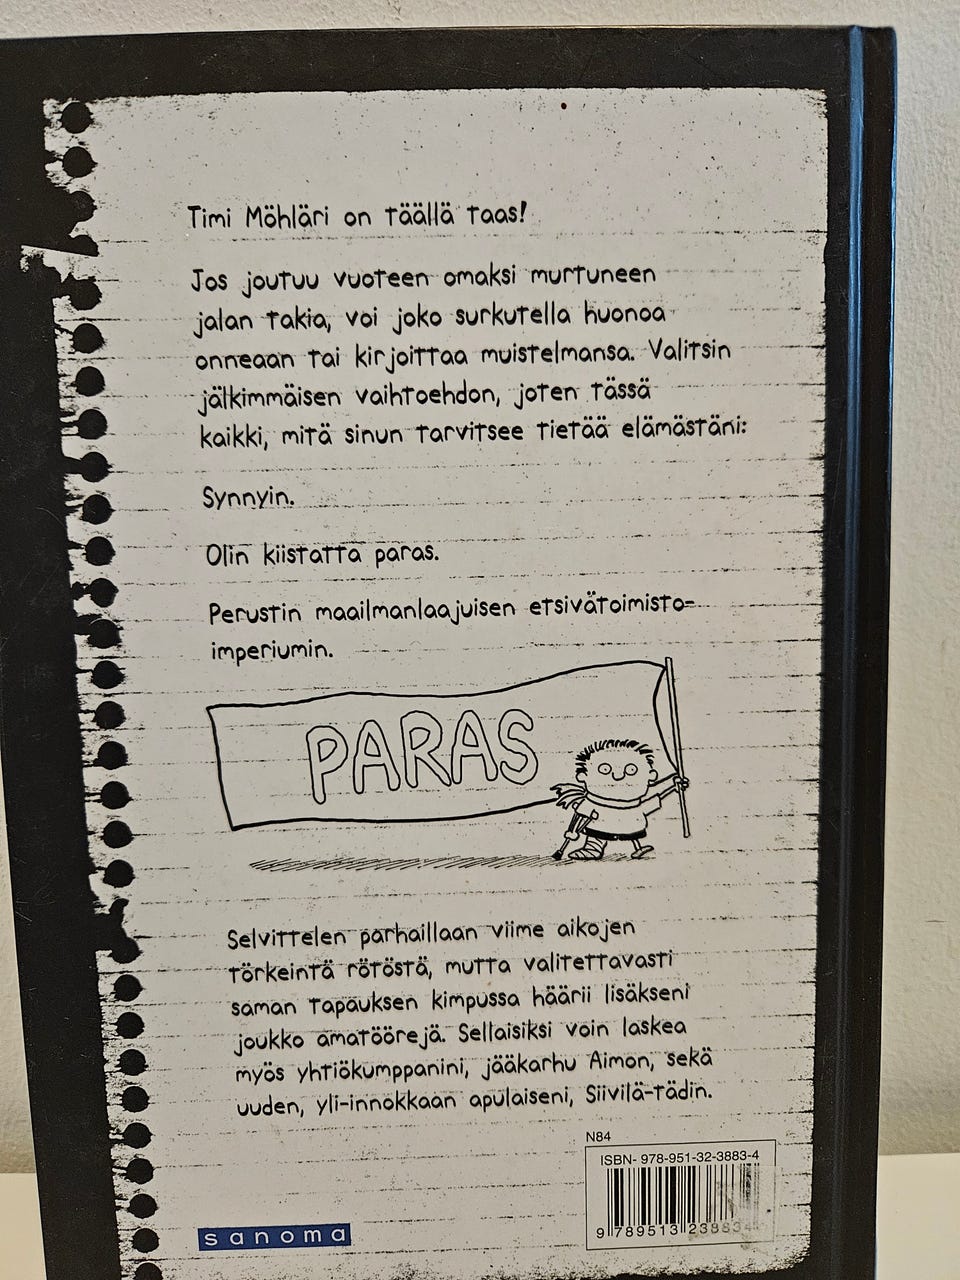 Timi Möhläri on täällä taas!
Jos joutuu vuoteen omaksi murtuneen
jalan takia, voi joko surkutella huonoa
onneaan tai kirjoittaa muistelmansa. Valitsin
jälkimmäisen vaihtoehdon, joten tässä
kaikki, mitä sinun tarvitsee tietää elämästäni:
Synnyin.
Olin kiistatta paras.
Perustin maailmanlaajuisen etsivätoimisto-
imperiumin.
PARAS
Selvittelen parhaillaan viime aikojen
törkeintä rötöstä, mutta valitettavasti
saman tapauksen kimpussa häärii lisäkseni
joukko amatöörejä. Sellaisiksi voin laskea
myös yhtiökumppanini, jääkarhu Aimon, sekä
uuden, yli-innokkaan apulaiseni, Siivilä-tädin.
N84
ISBN- 978-951-32-3883-4
9 789513 238834
sanoma